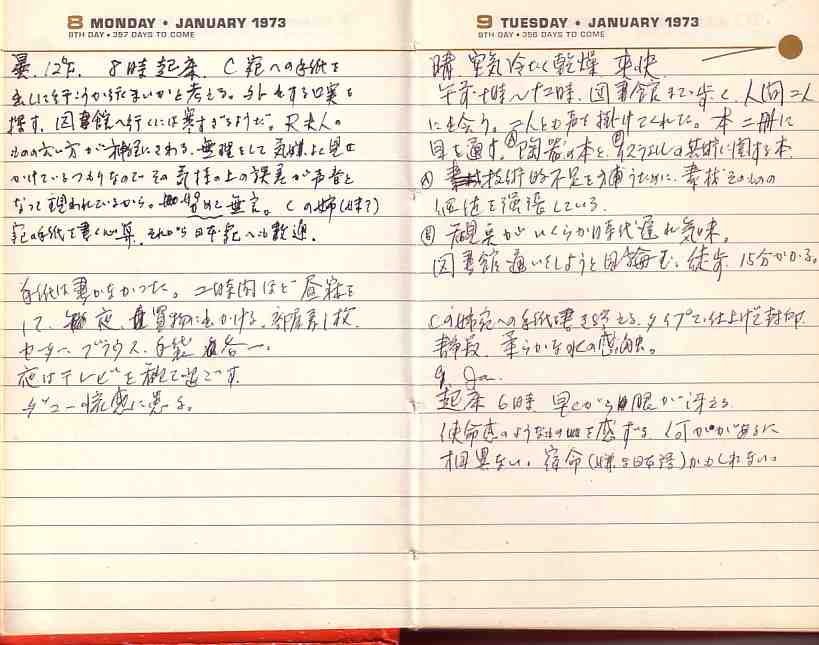 8 MONDAY • JANUARY 1973
8TH DAY • 357 DAYS TO COME
曇、12°F. 8時起床 C宛への手紙を
出しに行こうか行くまいかと考える。外出する口実を
探す。図書館へ行くには寒すぎるようだ。R夫人の
ものの云い方が神経にさわる。無理をして気嫌よく見せ
かけているつもりなのでその気持の上の誤差が声音と
なって現われているから。努めて無言。Cの姉(妹?)
宛の手紙を書く心算、それから日本宛へも数通。
手紙は書かなかった。二時間ほど昼寝を
して、夜、買物に出かける。部屋着1枚、
セーター、ブラウス、手袋各一。
夜はテレビを観て過ごす。
9 TUESDAY • JANUARY 1973
9TH DAY • 356 DAYS TO COME
晴 空気冷たく乾燥 爽快
午前十時〜十二時、図書館まで歩く、人間二人
に出会う。二人とも声を掛けてくれた。本二冊に
目を通す。Ⓐ陶器の本と、Ⓑの共術に関する本.
Ⓐ 技術的不足を補うために、素材そのもの
価値を強張している.
Ⓑ がいくらか時代遅れ気味。
図書館通いをしようと目論む。徒歩 15分かかる。
Cの姉宛への手紙を書き終える、タイプで仕上げて封印.
静寂、柔らかな火の感触。
9. Ja.
起床 6時 早くから眼が冴える.
使命感のようなものを感ずる 何かがあるに
相異ない。宿命(嫌な日本語)かもしれない。